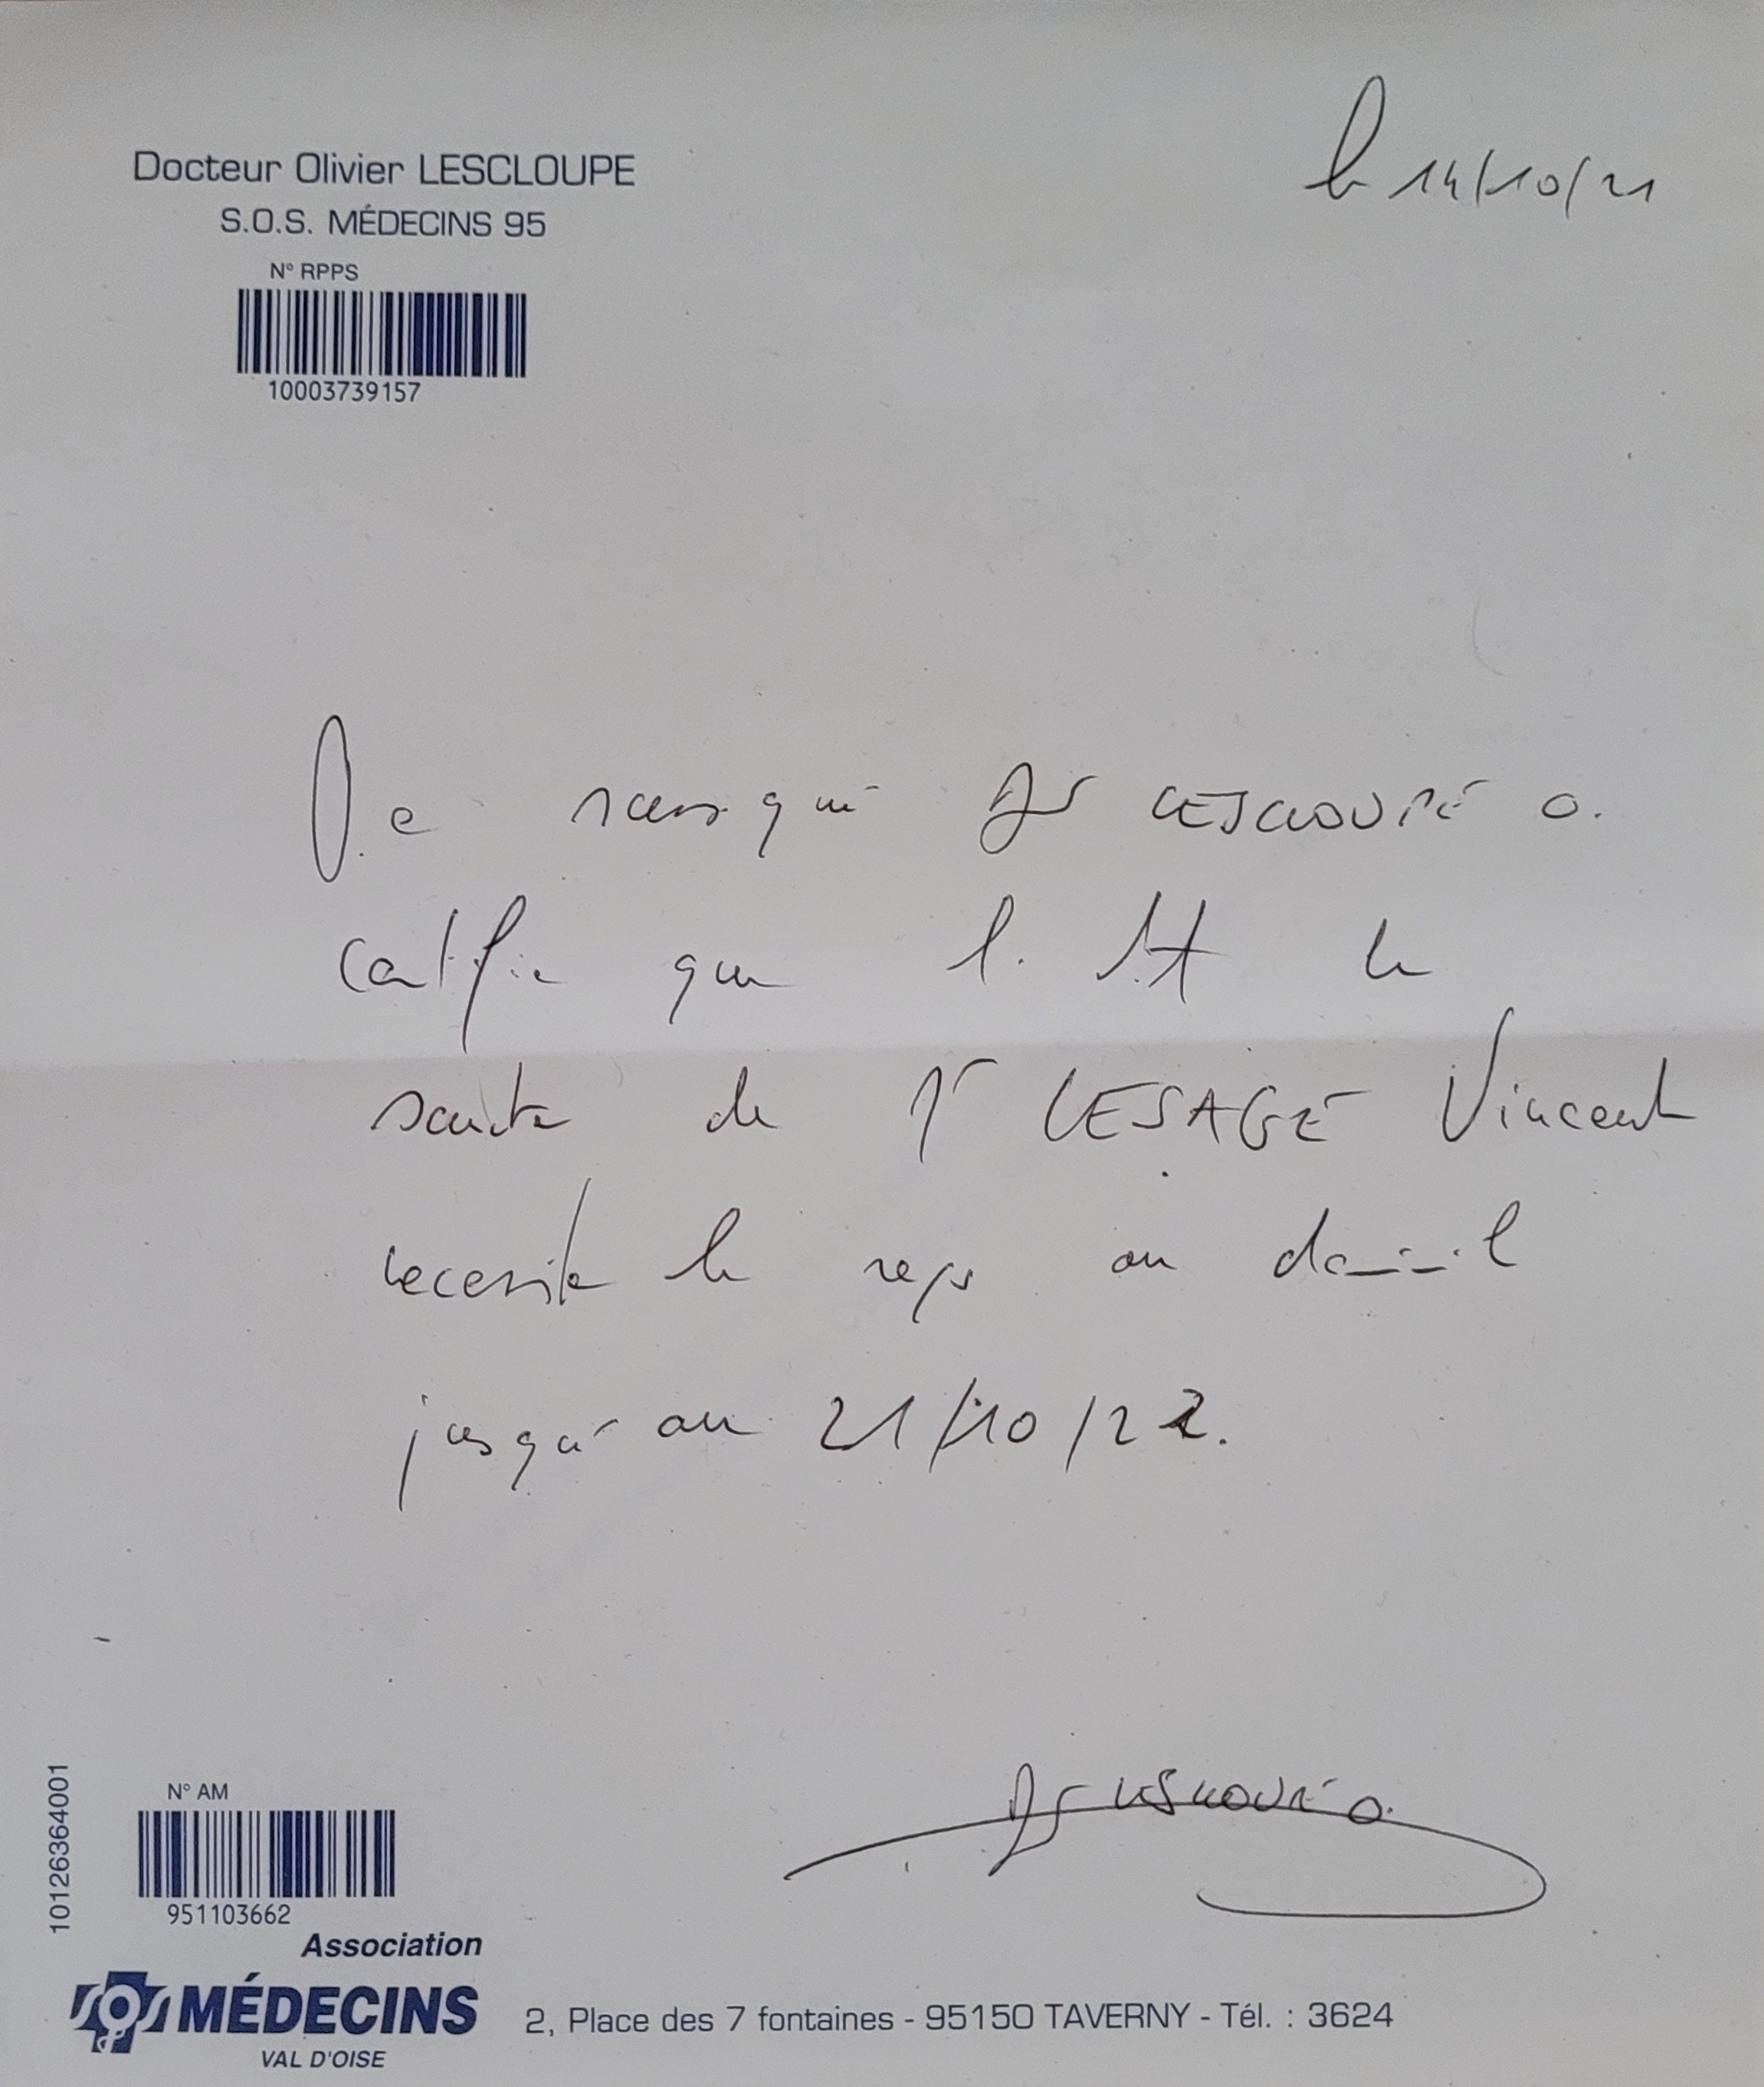 Docteur Olivier LESCLOUPE
S.O.S. MÉDECINS 95
N° RPPS
10003739157
le 14/10/21
Je soussigné Dr LESCLOUPE O.
certifie que l'état de
santé de Mr LESAGE Vincent
necessite le repos au domicile
jusqu'au 21/10/22.
Dr LESCLOUPE O.
10126364001
N° AM
951103662
Association
SOS MÉDECINS
VAL D'OISE
2, Place des 7 fontaines - 95150 TAVERNY - Tél. : 3624